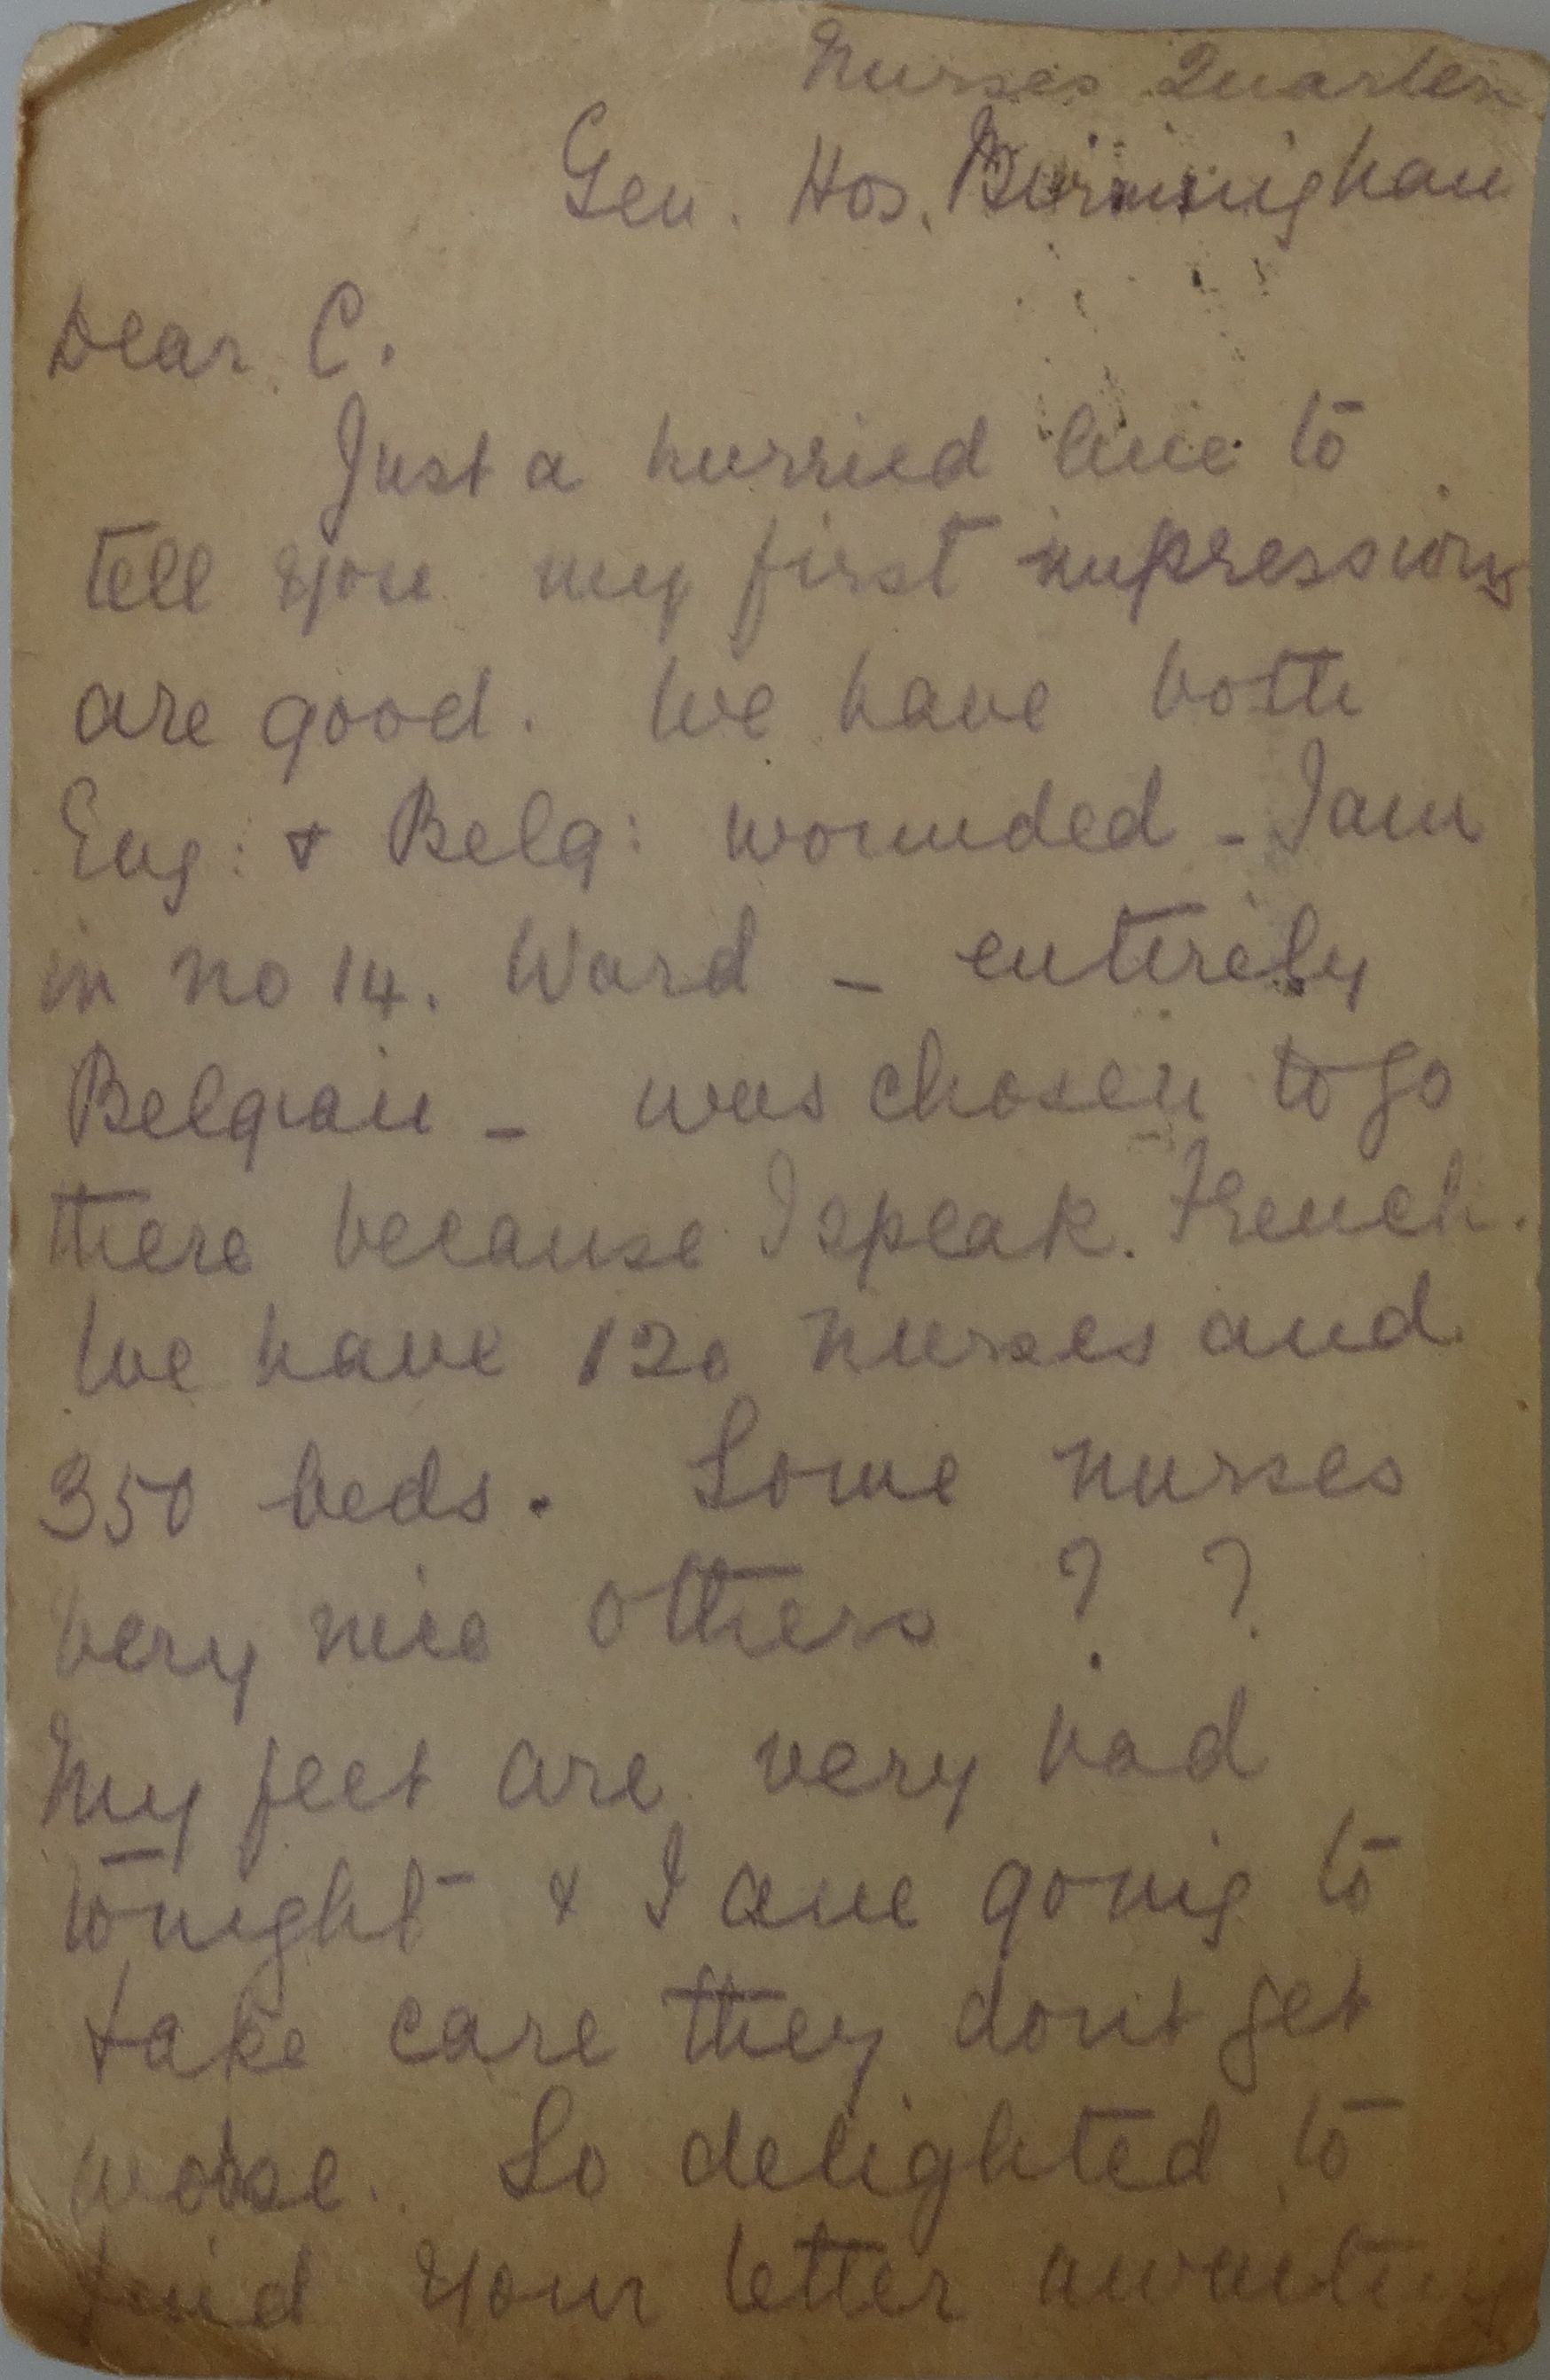 Nurses Quarters
Gen. Hos. Birmingham
Dear C.
Just a hurried line to
tell you my first impressions
are good. We have both
Eng: & Belg: wounded - I am
in no 14. Ward - entirely
Belgian - was chosen to go
there because I speak French.
We have 120 nurses and
350 beds. Some nurses
very nice others ? ?
My feet are very bad
tonight & I am going to
take care they dont get
worse. So delighted to
find your letter awaiting